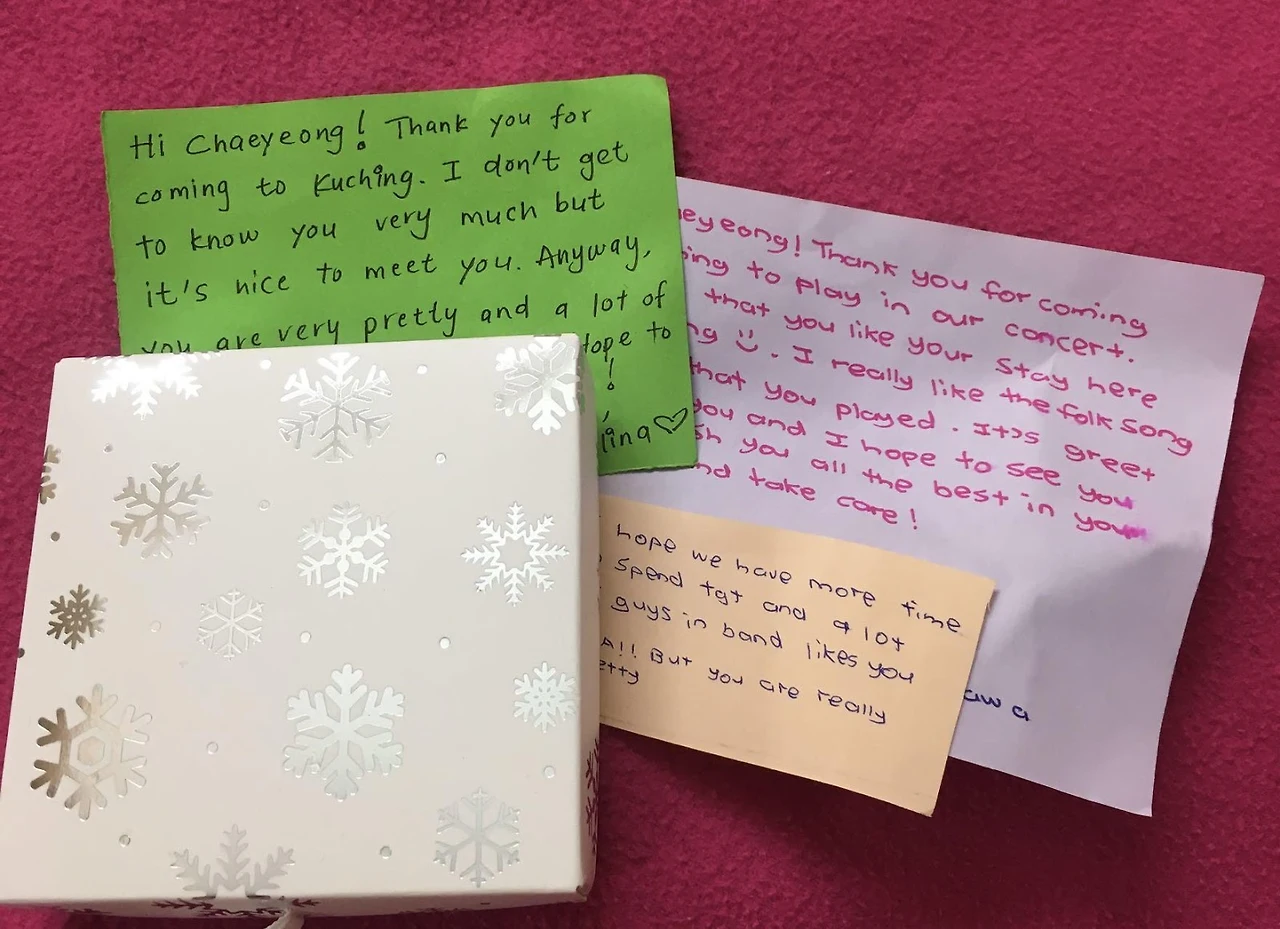 Hi Chaeyeong! Thank you for
coming to Kuching. I don't get
to know you very much but
it's nice to meet you. Anyway,
you are very pretty and a lot of
ope to
!
lina♡
eyeong! Thank you for coming
ing to play in our concert.
that you like your stay here
ng :). I really like the folk song
that you played. It's greet
you and I hope to see you
sh you all the best in your
nd take care!
aw a
hope we have more time
spend tgt and a lot
guys in band likes you
A!! But you are really
etty